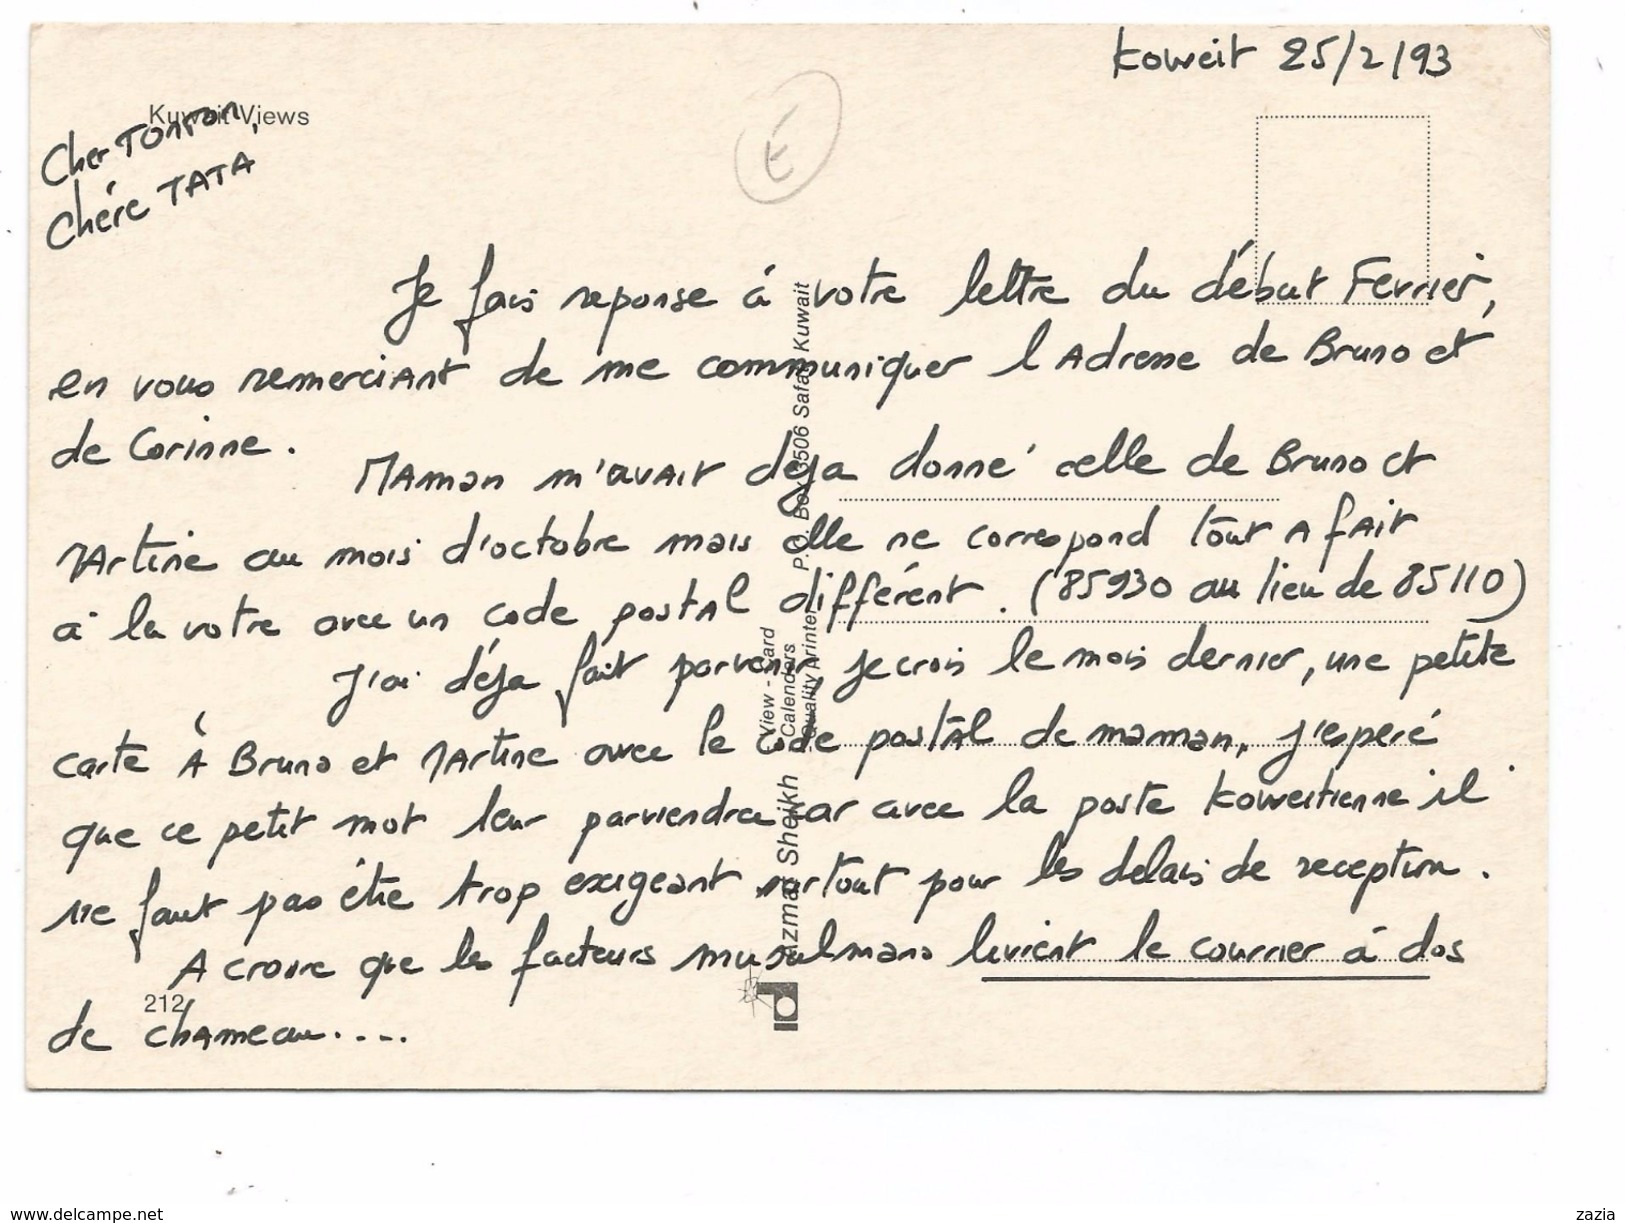 Koweit 25/2/93
Kuwait Views
Cher TONTON,
Chére TATA
Je fais reponse á votre lettre du début Fevrier,
en vous remerciant de me communiquer l'Adresse de Bruno et
de Corinne.
MAman m'avait déja donné celle de Bruno et
MArtine au mois d'octobre mais elle ne correspond tout A fAit
a la votre avec un code postal différent. (85930 au lieu de 85110)
J'ai déja fait parvenir, je crois le mois dernier, une petite
carte À Bruno et MArtine avec le code postal de maman, j'esperé
que ce petit mot leur parviendra car avec la poste Koweitienne il
ne faut pas étre trop exigeant surtout pour les delais de reception.
A croire que les facteurs musulmans livrent le courrier á dos
de chameau....
212
Azmat Sheikh
View - Card
Calenders
Quality Printer
P.O. Box 3506 Safat Kuwait
E
www.delcampe.net
zazia